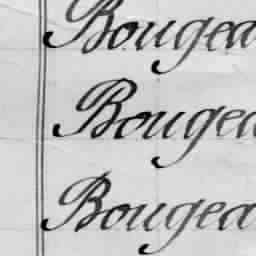 Bougea
Bougea
Bougea